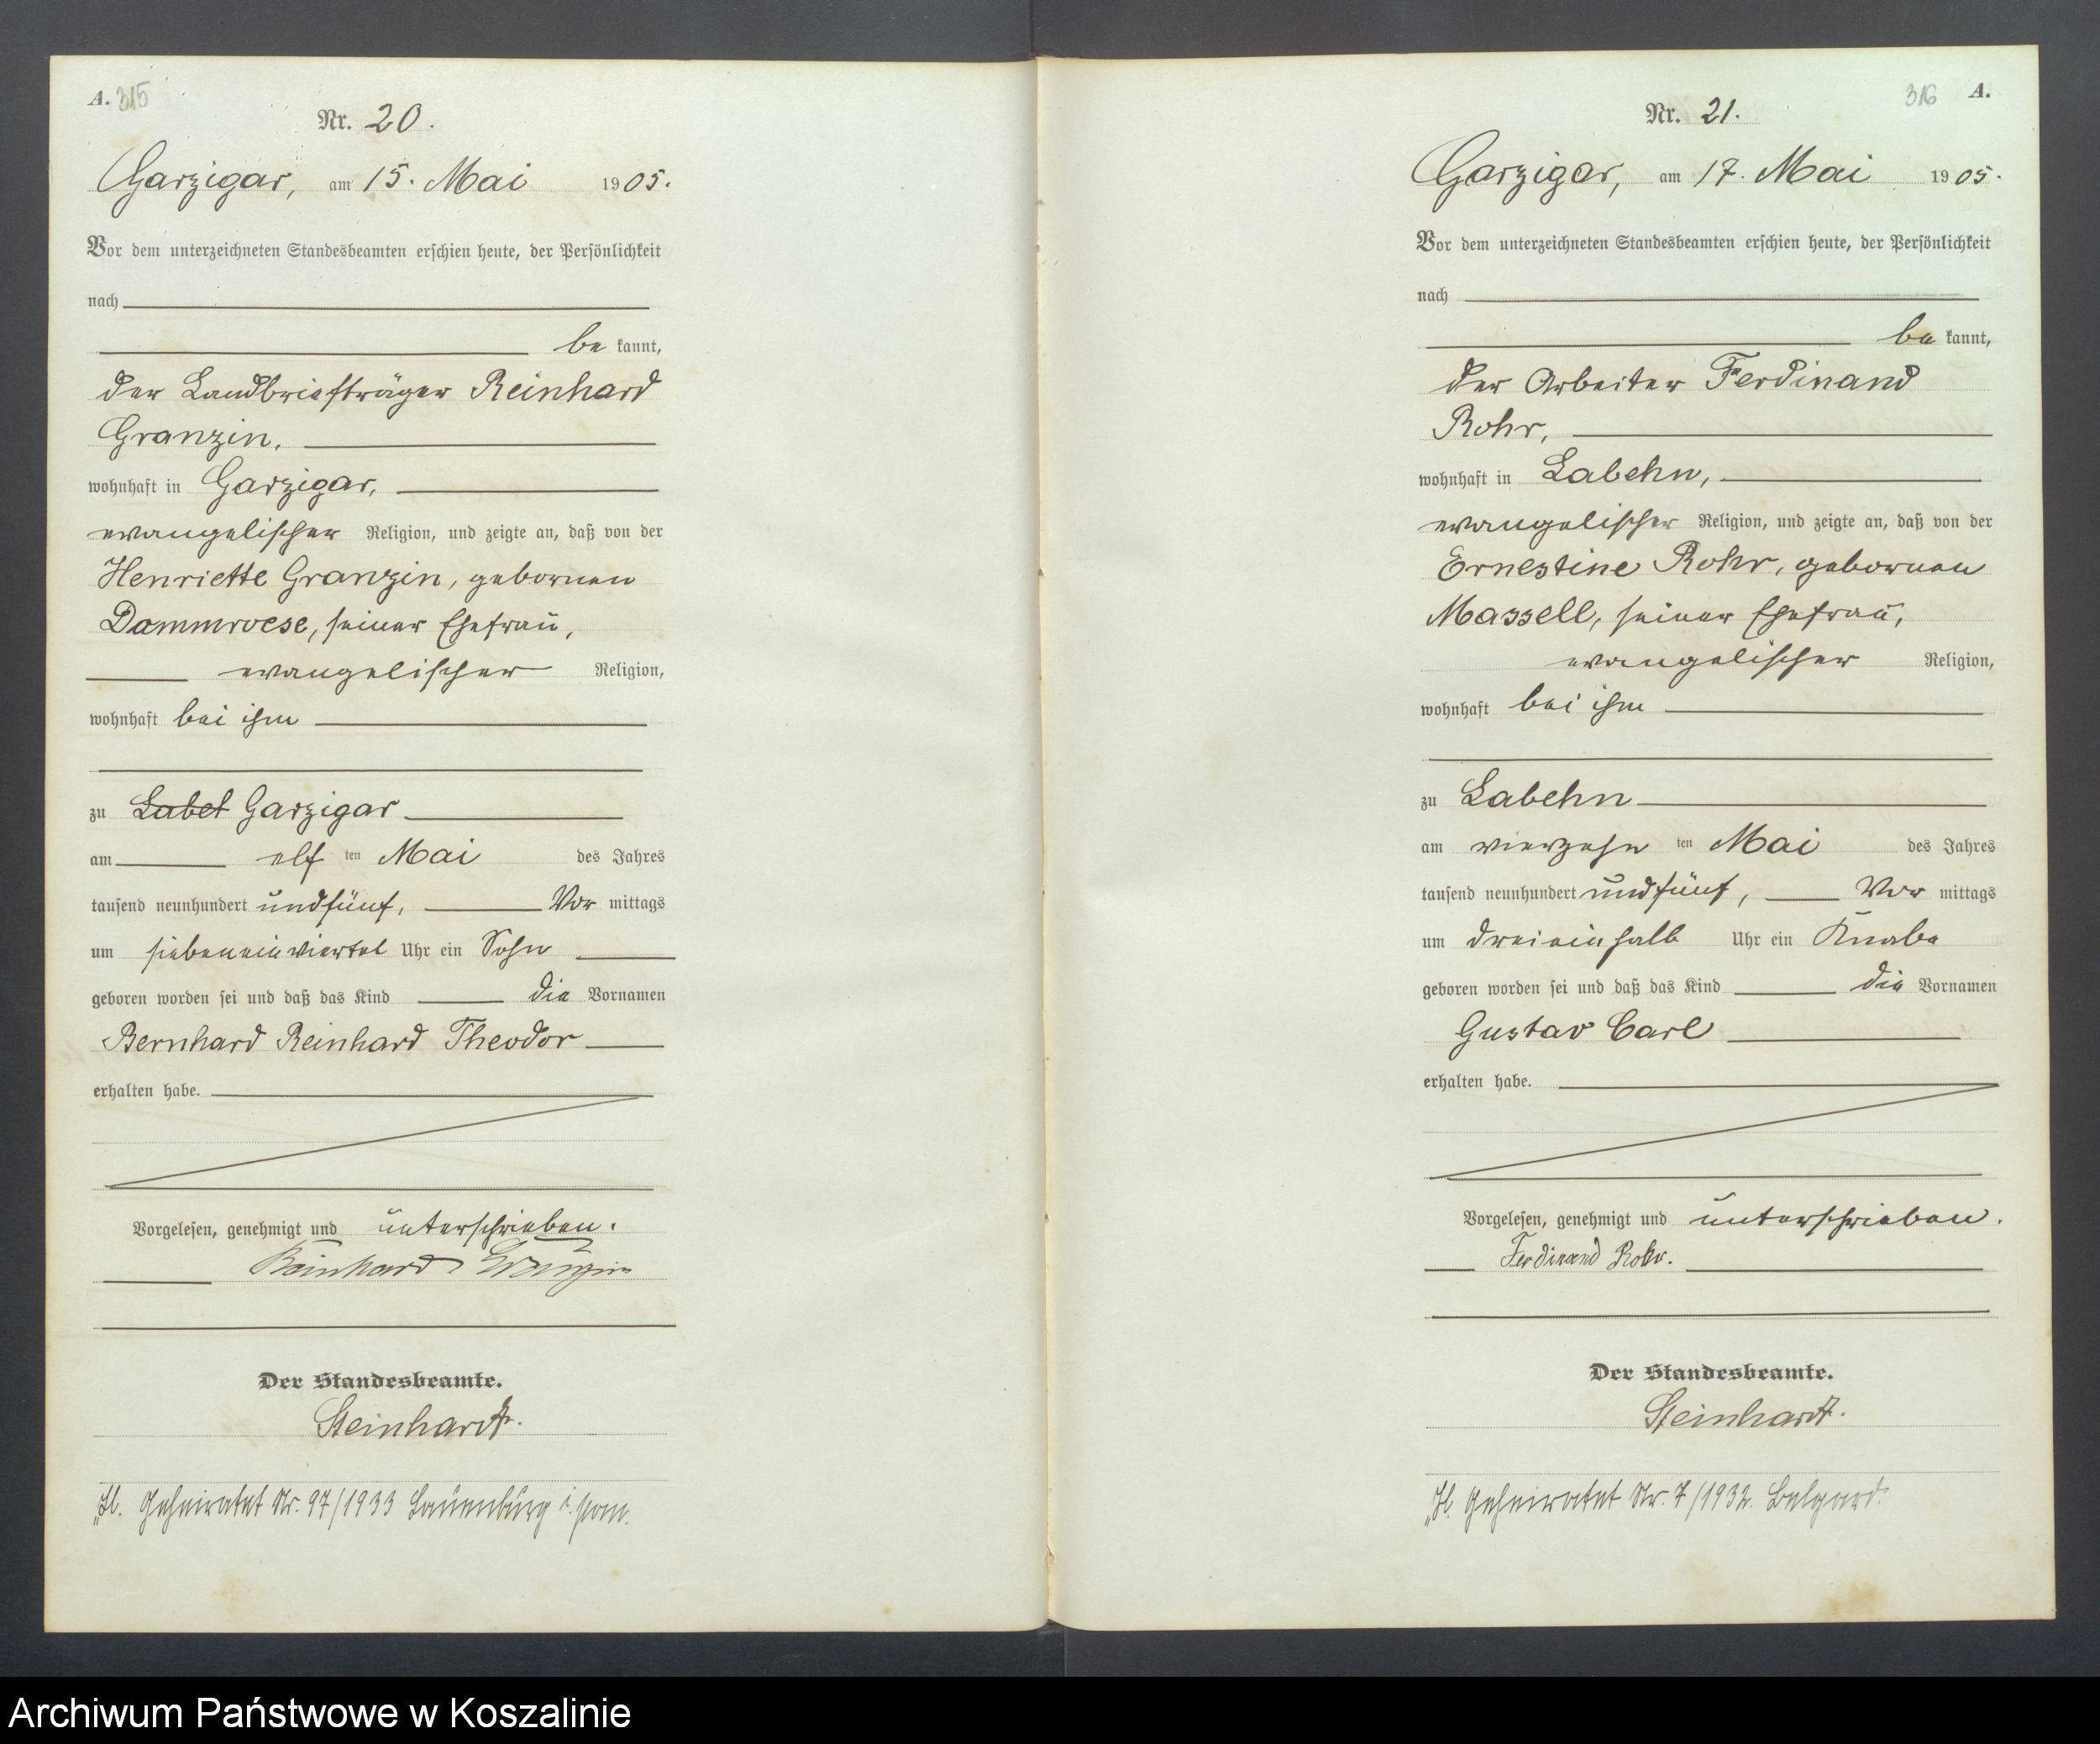 A. 315
Nr. 20.
Garzigar, am 15. Mai 1905.
Vor dem unterzeichneten Standesbeamten erschien heute, der Persönlichkeit
nach
be kannt,
der Landbriefträger Reinhard
Granzin,
wohnhaft in Garzigar,
evangelischer Religion, und zeigte an, daß von der
Henriette Granzin, gebornen
Dammroese, seiner Ehefrau,
evangelischer Religion,
wohnhaft bei ihm
zu Labeh Garzigar
am elf ten Mai des Jahres
tausend neunhundert undfünf, Vor mittags
um siebeneinviertel Uhr ein Sohn
geboren worden sei und daß das Kind die Vornamen
Bernhard Reinhard Theodor
erhalten habe.
Vorgelesen, genehmigt und unterschrieben.
Reinhard Granzin
Der Standesbeamte.
Steinhardt.
Geheiratet Nr. 97/1933 Lauenburg i. Pom.
316 A.
Nr. 21.
Garzigar, am 17. Mai 1905.
Vor dem unterzeichneten Standesbeamten erschien heute, der Persönlichkeit
nach
be kannt,
der Arbeiter Ferdinand
Rohr,
wohnhaft in Labehn,
evangelischer Religion, und zeigte an, daß von der
Ernestine Rohr, gebornen
Massell, seiner Ehefrau,
evangelischer Religion,
wohnhaft bei ihm
zu Labehn
am vierzehn ten Mai des Jahres
tausend neunhundert undfünf, Vor mittags
um dreieinhalb Uhr ein Knabe
geboren worden sei und daß das Kind die Vornamen
Gustav Carl
erhalten habe.
Vorgelesen, genehmigt und unterschrieben.
Ferdinand Rohr.
Der Standesbeamte.
Steinhardt.
Geheiratet Nr. 7/1932. Belgard.
Archiwum Państwowe w Koszalinie